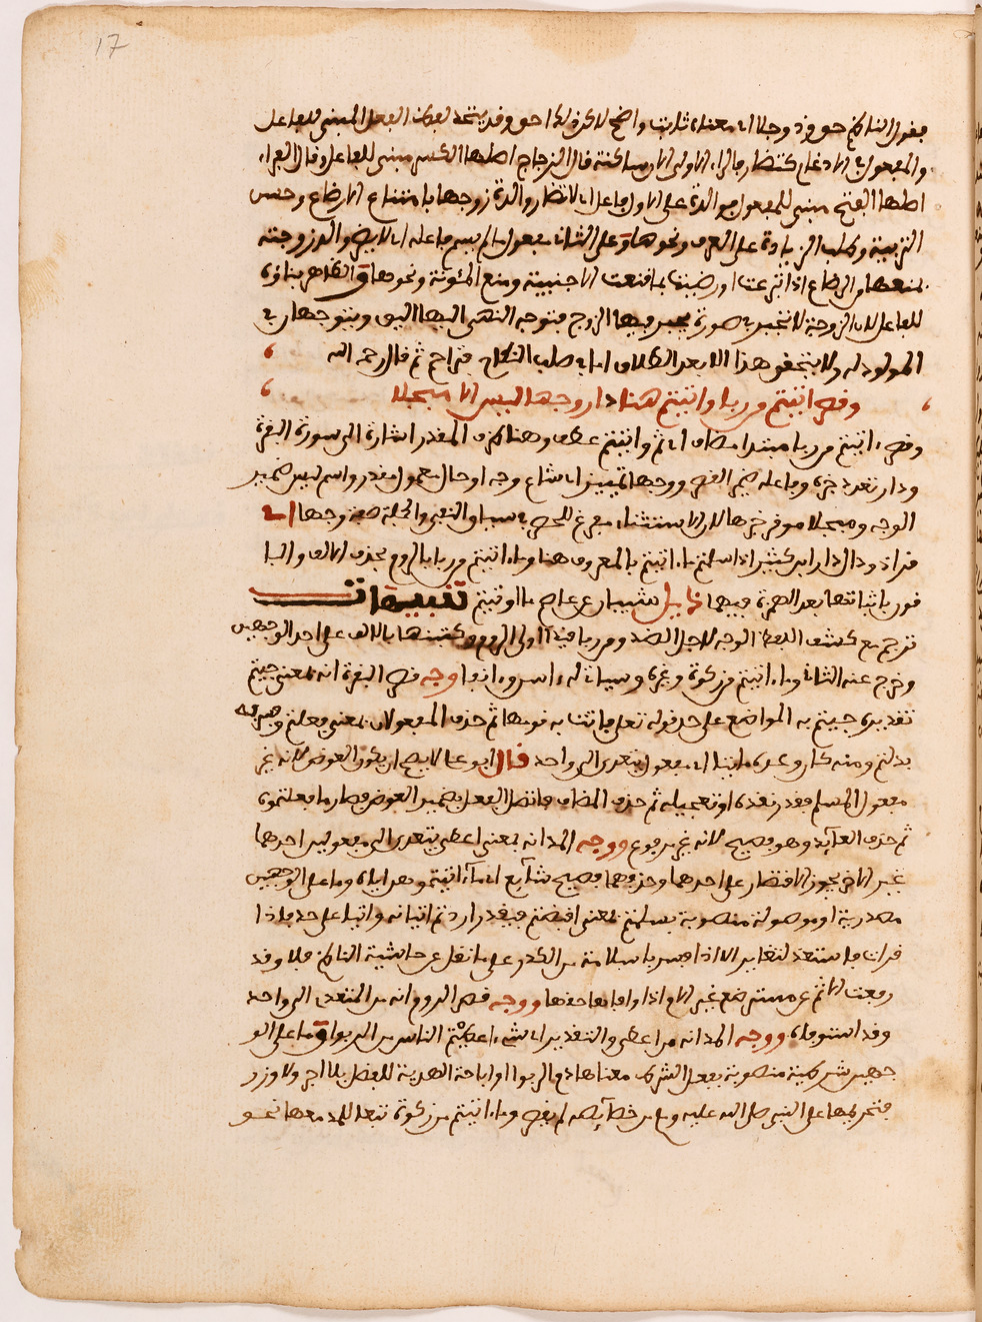 17
فقول الناظم حق وذو جلا اى معناه ثابت واضح
والمفعول في الادغام كتضار فالراء الاولى الان ساكنة قال الزجاج اصلها الكسر مبني للفاعل وقال الفراء
اصلها الفتح مبني للمفعول فوالدة على الاول فاعل اى لا تضار والدة زوجها بامتناع الارضاع وحسن
التربية وطلب الزيادة على العرف ونحوها وعلى الثاني مفعول ما لم يسم فاعله اى لا يضر والد زوجته
بمنعها من الرضاع اذا تبرعت او رضيت بما قنعت الاجنبية ومنع المئونة ونحوها والظاهر بناؤه
للفاعل لان الزوجة لا تجبر في صورة يجبر فيها الزوج فتوجه النهى اليها اليق ويتوجهان في
المولود له ولا يتحقق هذا الا بعد الطلاق اما في صلب النكاح فتراحم ثم قال رحمه الله
وقصر اتيتم من ربا واتيتم هنا دار وجها ليس الا مبجلا
وقصر اتيتم من ربا مبتدا مضاف اى ثم واتيتم عطف وهنا ظرف المقدر اشارة الى سورة البقرة
ودار تعدد خبره وفاعله ضمير القصر ووجها تمييز اى شاع وجهه او حال معمول مقدر واسم ليس ضمير
الوجه ومبجلا موفر خبرها لان الاستثناء مفرغ للحصر في سياق النفي والجملة صفة وجها اى
قرا ذو دال دار ابن كثير اذا سلمتم ما اتيتم بالمعروف هنا وما اتيتم من ربا بالروم بحذف الالف والبا
قون باثباتها بعد الهمزة فيهما ذيل شيبان عن عاصم ما اوتيتم تنبيهات
ترجم مع كشف اللفظ الوجه لاجل الضد ومن ربا قيد اولى الروم وكتبتها بالالف على احد الوجهين
وخرج عنه الثاني وما اتيتم من زكوة وغيره وسياتي له اسر وانفا وجه قصر البقرة انه بمعنى جيتم
تقديره جيتم به المواضع على حد قوله تعلى فاتنا به فوبها ثم حذف المفعولان بمعنى فعلتم وصرفه
بذلتم ومنه كان وعده ماتيا اى مفعولا يتعدى الى واحد قال ابو على لا يصح ان يكون العوض لانه غير
مفعول المسلم فقدر نقده او تعجيله ثم حذف المضاف فاتصل الفعل بضمير العوض فصار ما فعلتموه
ثم حذف العائد وهو فصيح لانه غير مرفوع ووجه المد انه بمعنى اعطى يتعدى الى مفعولين احدهما
غير الاخر يجوز الاقتصار على احدهما وحذفهما فصيح شايع اى ما اتيتموهن اياه وما على الوجهين
مصدرية او موصولة منصوبة بسلمتم بمعنى اقبضتم فيقدر اردتم اتيانه واتيا على حد فاذا
قرات فاستعذ لتغاير الاداء
رفعت الاثم عن مسترضع غير الام اذا وافاها حقها ووجه قصر الروم انه من المتعدى الى واحد
وقد استوفاه ووجه المد انه من اعطى والتقدير اى شىء اعطيتم الناس من الربوا وما على الو
جهين شرطية منصوبة بفعل الشرط معناها ذم الربوا او اباحة الهدية للفضل بلا اجر ولا وزر
فتحريمها على النبي صلى الله عليه وسلم من خصائصه لم يقصر وما اتيتم من زكوة تبعا للمد معها نحو